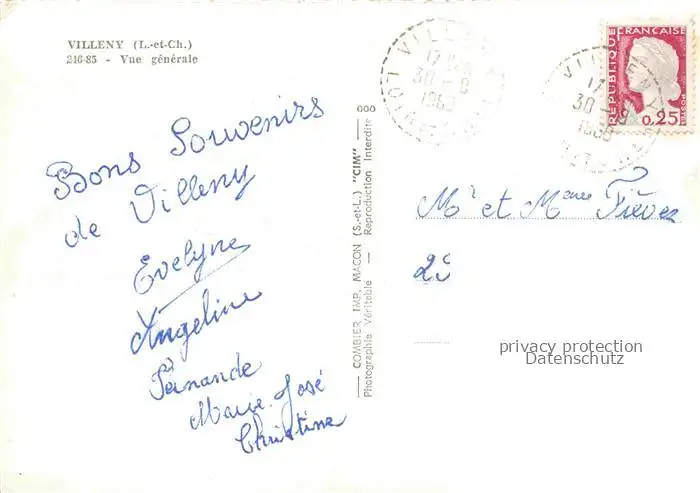 VILLENY (L.-et-Ch.)
216-85 - Vue générale
Bons Souvenirs
de Villeny
Evelyne
Angeline
Fernande
Marie-José
Christine
COMBIER IMP. MACON (S.-et-L.) "CIM"
Photographie Véritable — Reproduction Interdite
VILLENY
17
30
LOIR ET CHER
REPUBLIQUE FRANÇAISE
0,25
VILLENY
17
30
Mr et Mme Fièvez
privacy protection
Datenschutz